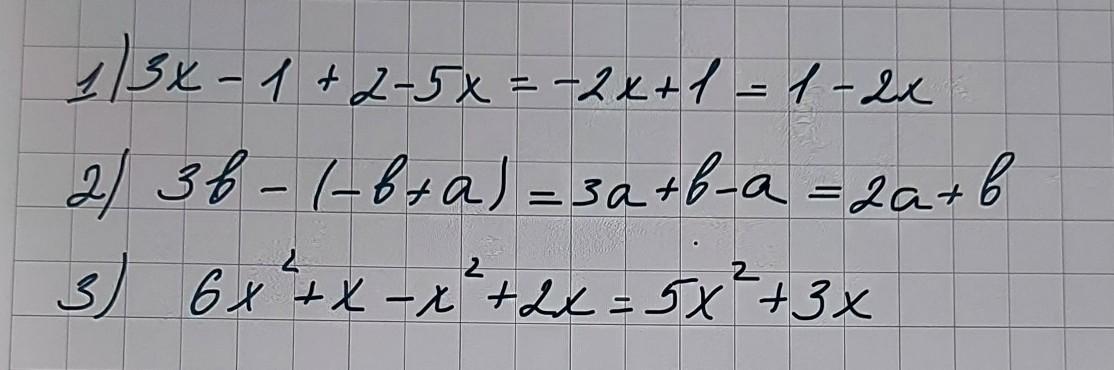 1) 3x - 1 + 2 - 5x = -2x + 1 = 1 - 2x
2) 3b - (-b + a) = 3a + b - a = 2a + b
3) 6x² + x - x² + 2x = 5x² + 3x